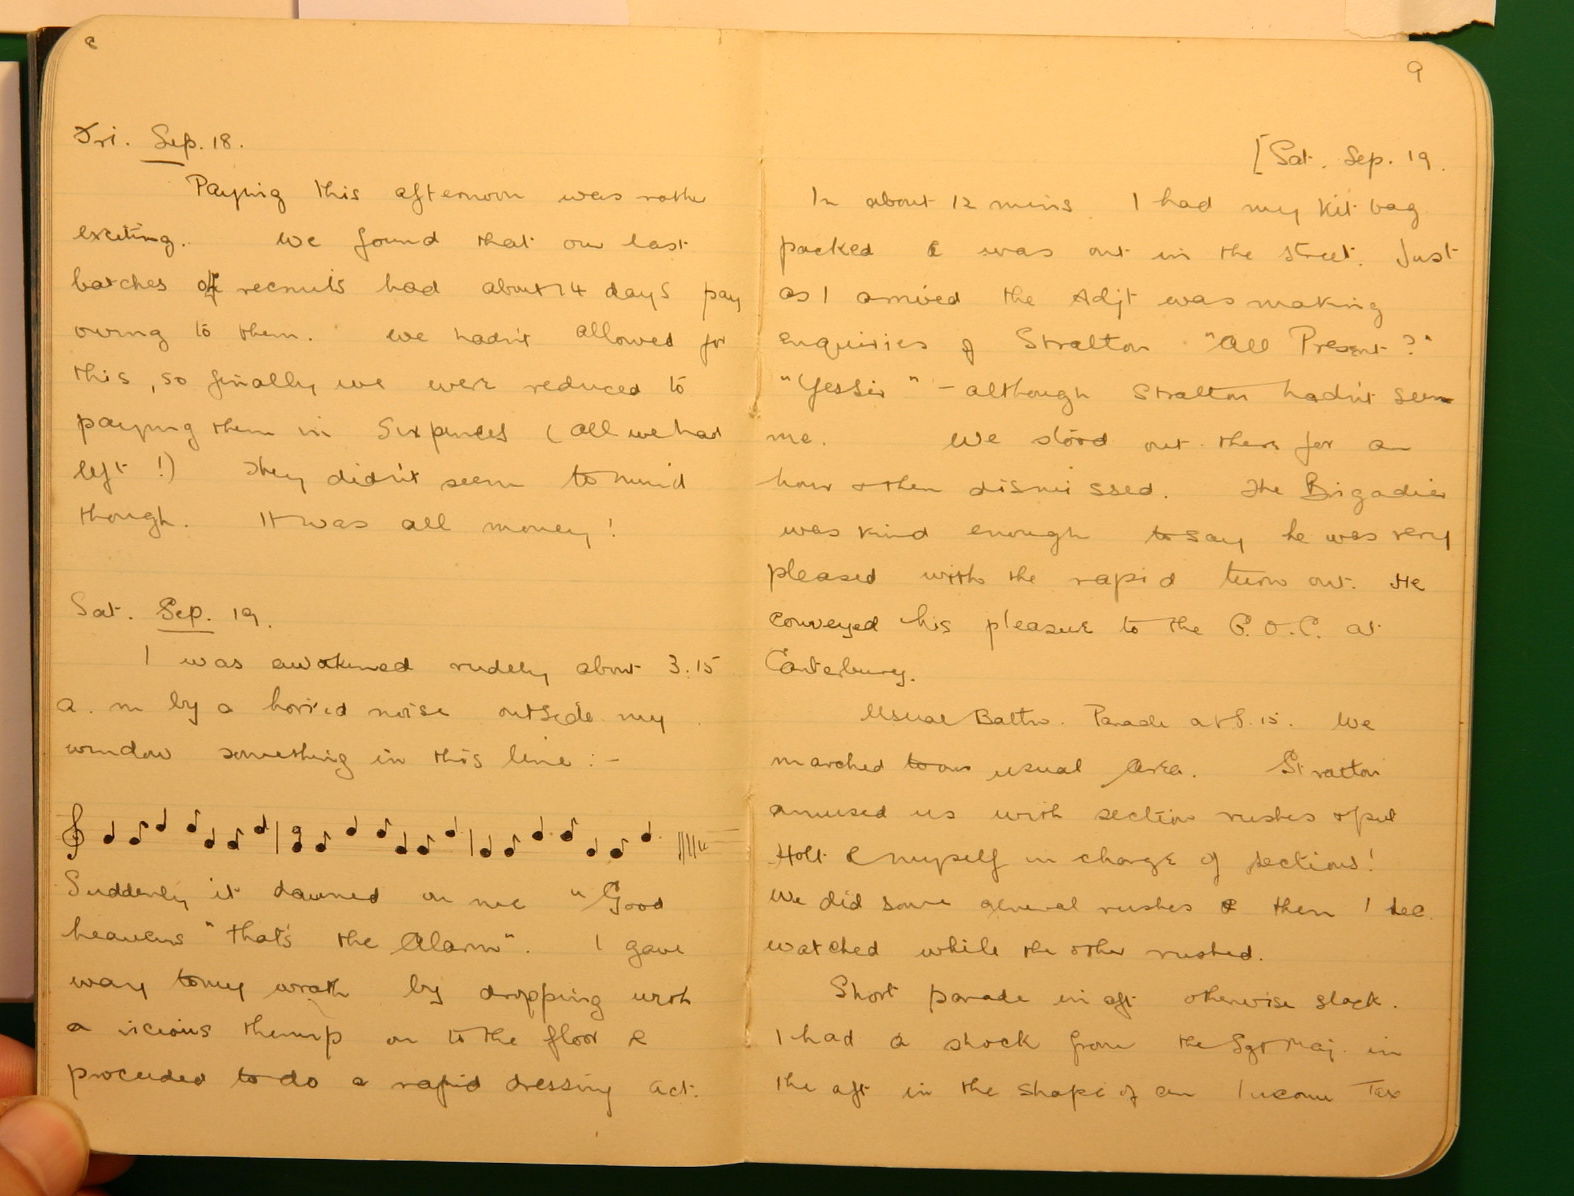 8
Fri. Sep. 18.
Paying this afternoon was rather
exciting. We found that our last
batches of recruits had about 14 days pay
owing to them. We hadn't allowed for
this, so finally we were reduced to
paying them in Sixpences (all we had
left !) They didn't seem to mind
though. It was all money!
Sat. Sep. 19.
I was awakened rudely about 3.15
a.m by a horrid noise outside my
window something in this line :-
Suddenly it dawned on me "Good
heavens "that's the Alarm". I gave
way to my wrath by dropping with
a vicious thump on to the floor &
proceeded to do a rapid dressing act.
9
[Sat. Sep. 19.
In about 12 mins. I had my kit bag
packed & was out in the street. Just
as I arrived the Adjt was making
enquiries of Stratton "All Present?"
"Yessir" - although Stratton hadn't seen
me. We stood out there for an
hour & then dismissed. The Brigadier
was kind enough to say he was very
pleased with the rapid turn out. He
conveyed his pleasure to the G.O.C. at
Canterbury.
Usual Battn. Parade at 8.15. We
marched to our usual area. Stratton
amused us with section rushes & put
Holt & myself in charge of sections!
We did some general rushes & then 1 sec.
watched while the other rushed.
Short parade in aft otherwise slack.
I had a shock from the Sgt Maj. in
the aft in the shape of an Income Tax